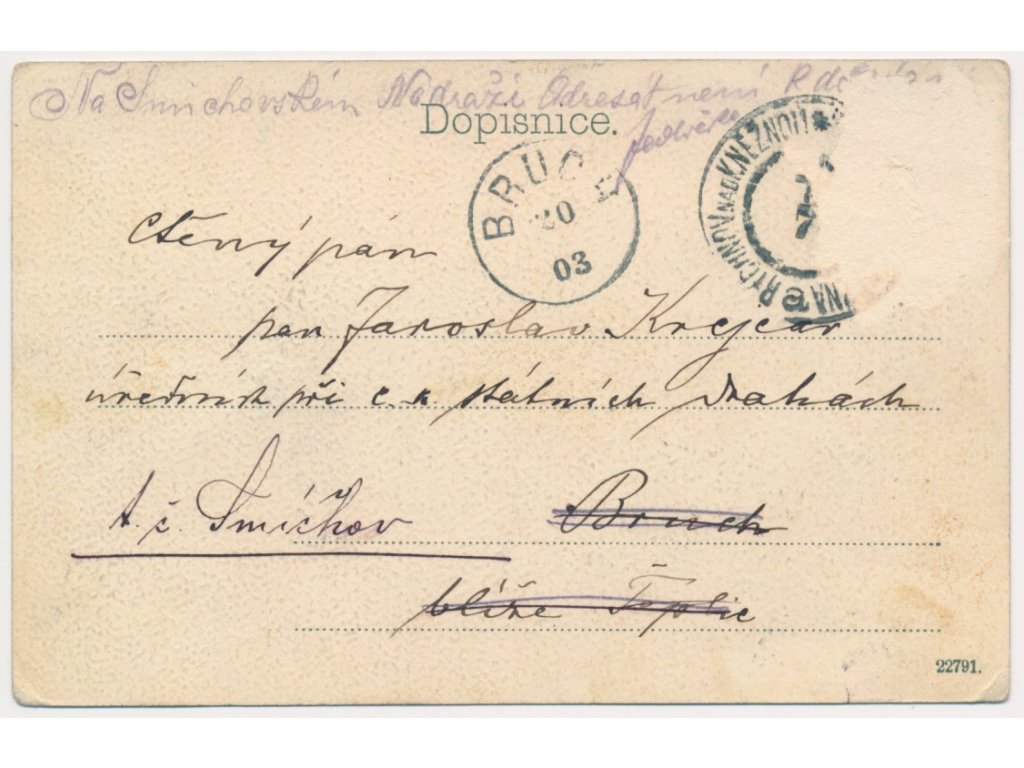 Na Smíchovském Nádraží Adresát není k
Dopisnice.
BRUCH
20
03
RYCHNOV NAD KNĚŽNOU * a
Ctěný pán
pan Jaroslav Krejcar
úředník při c. k. státních drahách
t. č. Smíchov
Bruch
blíže Teplic
22791.